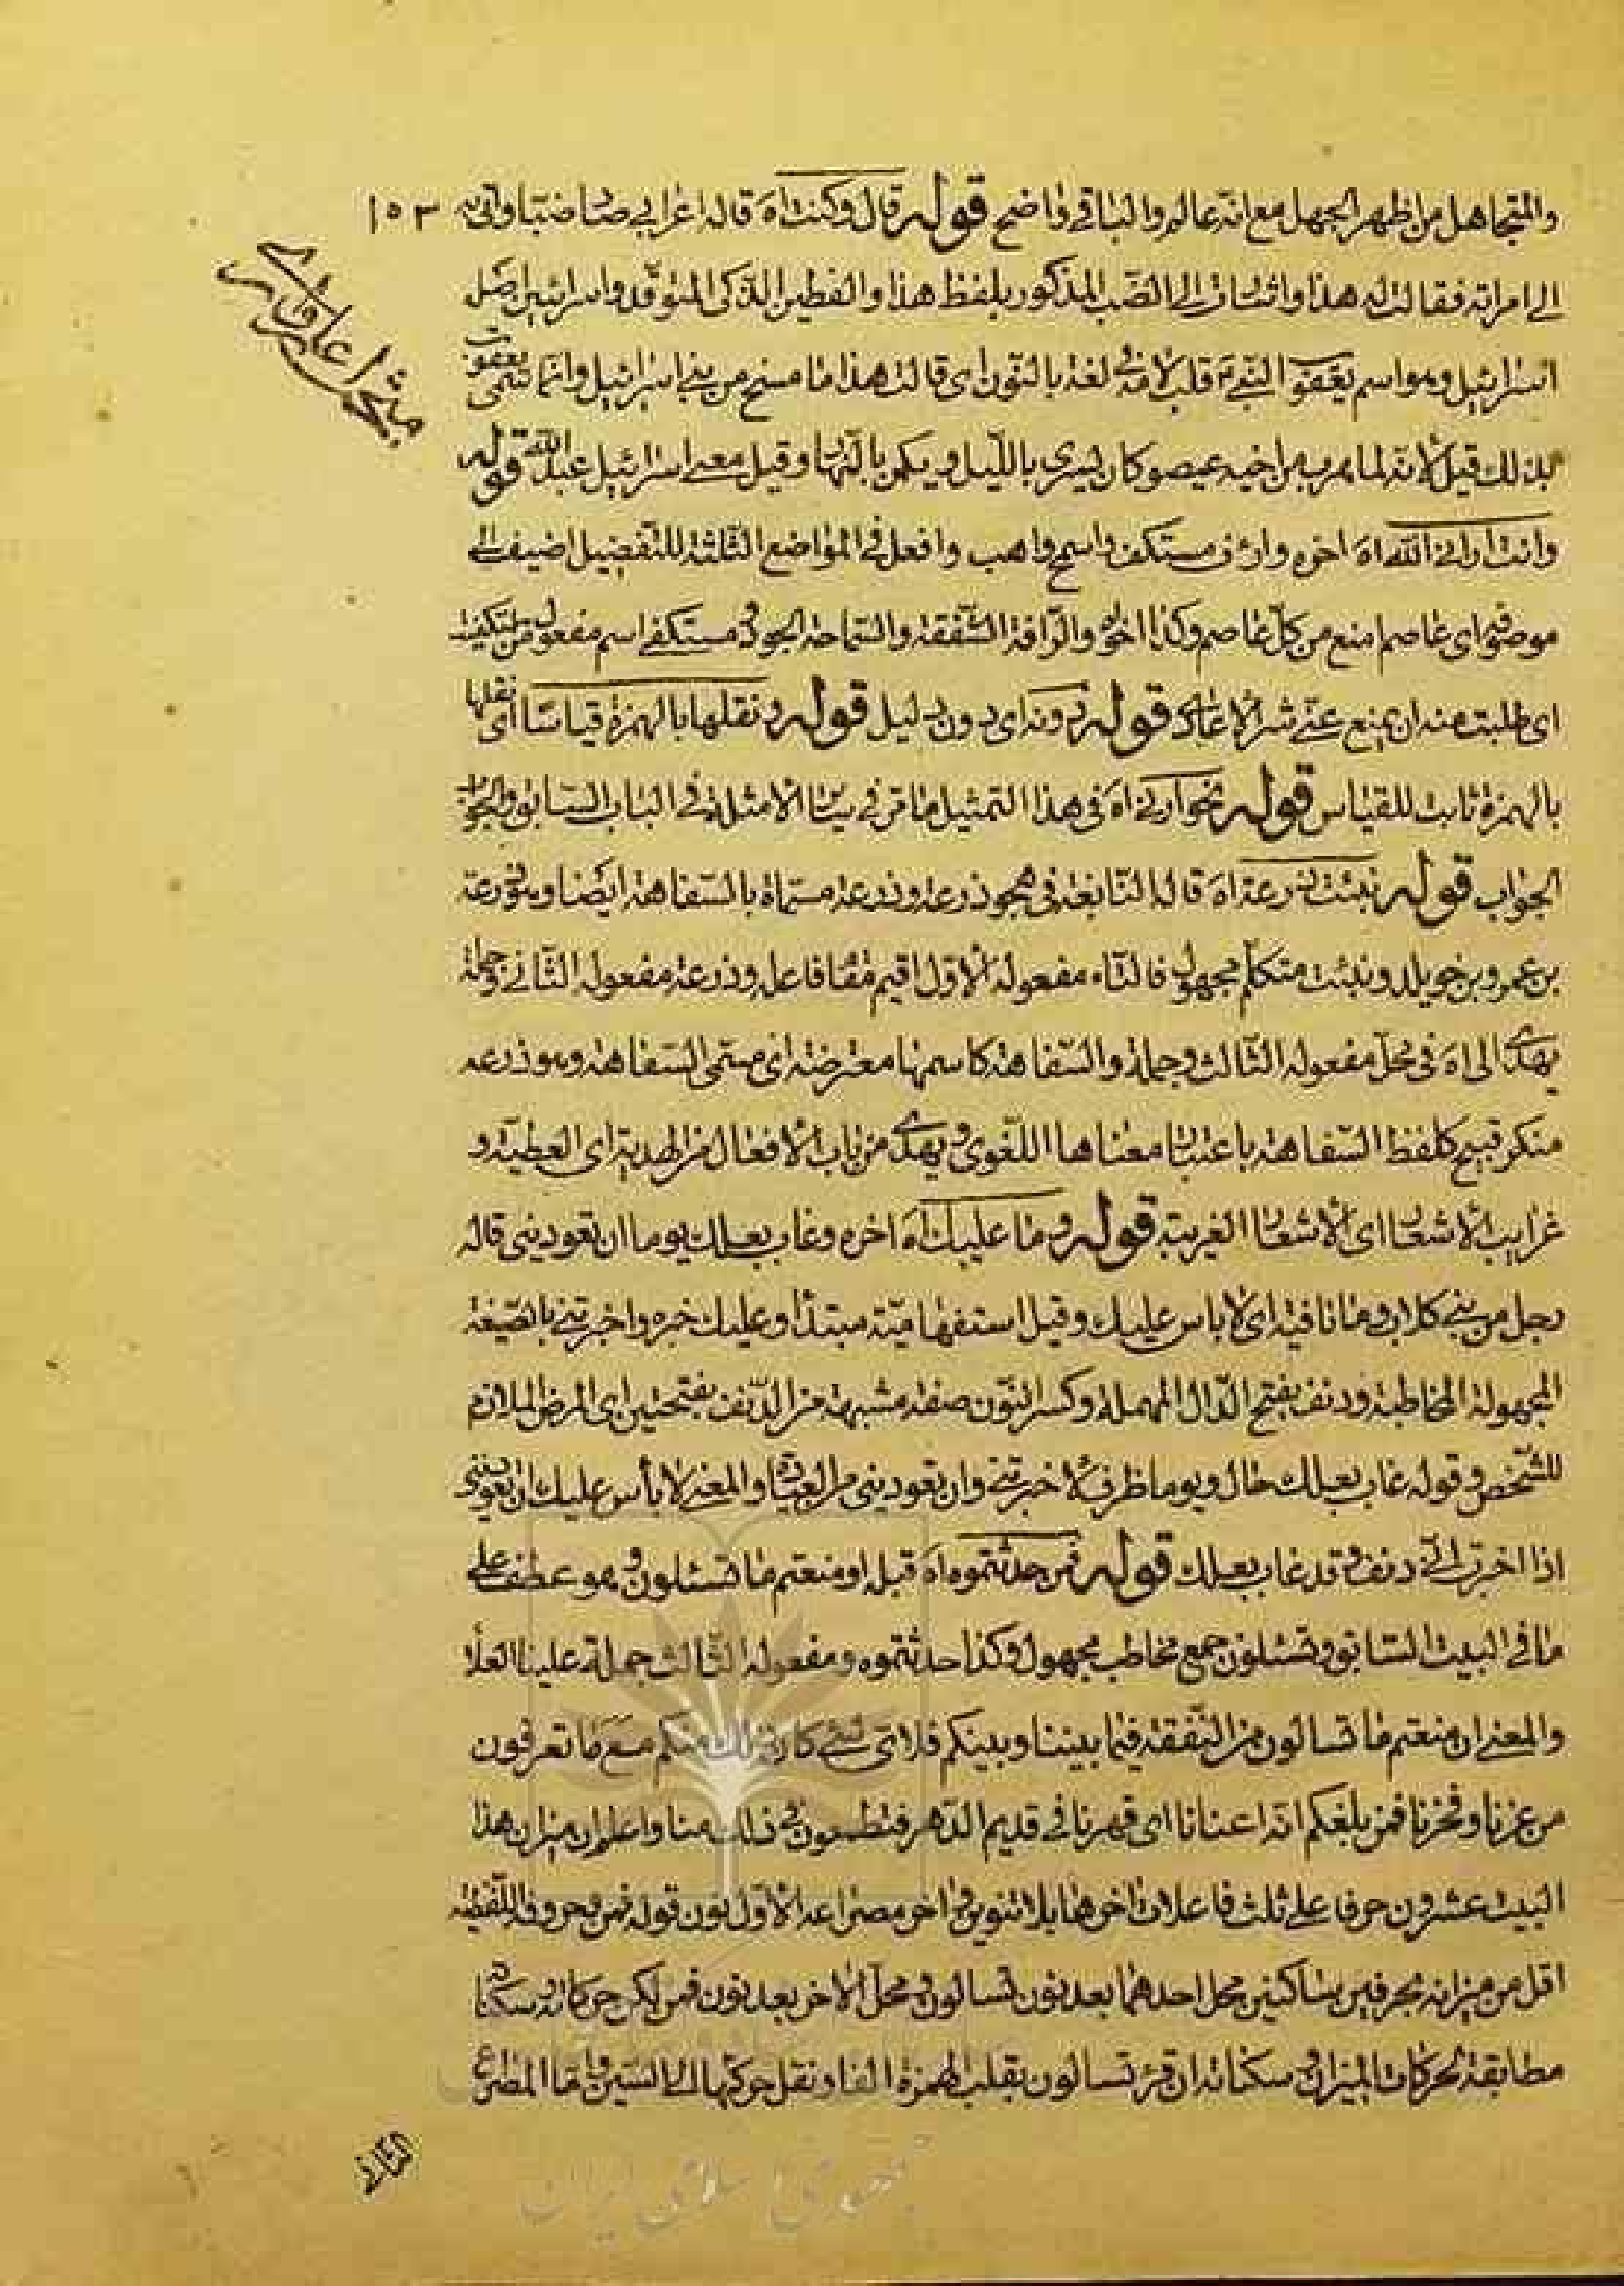 والمتجاهل من اظهر الجهل مع انّه عالم والباقي واضح قوله قال وكنت اه قاله اعرابي صاد ضبّا واتى به ١٥٣
الى امراته فقالت له هذا واشارت الى الضّب المذكور بلفظ هذا والفطين الذّكى المتوقّد واسرائين اصل
اسرائيل وهو اسم يعقوب النّبي ع قلب لامه في لغة بالنّون اى قالت هذا ما مسخ من بنى اسرائيل وانّما سمّى يعقوب
بذلك قيل لانّه لما هرب من اخيه عيصو كان يسرى باللّيل ويكمن بالنّهار وقيل معنى اسرائيل عبد الله قوله
وانت اراني الله اه اخره وارئف مستكفى واسمح واهب وافعل في المواضع الثّلثة للتّفضيل اضيف الى
موصوفه اى عاصم امنع من كلّ عاصم وكذا اخواه والرّافة الشّفقة والسّماحة الجود ومستكفى اسم مفعول من استكفيته
اى طلبت منه ان يمنع عنّى شرّ الاعادى قوله بدونه اى بدون دليل قوله ونقلها بالهمزة قياسًا اى نقلها
بالهمزة ثابت للقياس قوله نحو ارنى اه في هذا التمثيل ما مرّ في بيان الامثلة في الباب السّابق والجواب
الجواب قوله نبّئت زرعة اه قاله النّابغة في هجو زرعة وزرعة مسمّاة بالسّفاهة ايضا وهو زرعة
بن عمرو بن خويلد ونبّئت متكلّم مجهول فالتّاء مفعوله الاوّل اقيم مقام فاعله وزرعة مفعوله الثّاني وجملة
يهدى الى اه في محلّ مفعوله الثّالث وجملة والسّفاهة كاسمها معترضة اى مسمّى السّفاهة وهو زرعة
منكر قبيح كلفظ السّفاهة باعتبار معناها اللّغوى ويهدى من باب الافعال من الهدية اى العطيّة و
غرايب الاشعار اى الاشعار الغريبة قوله وما عليك اه اخره وغاب بعلك يوما ان تعوديني قاله
رجل من بنى كلاب وما نافية اى لا باس عليك وقيل استفهاميّة مبتدأ وعليك خبره واخبرتني بالصّيغة
المجهولة المخاطبة ودنف بفتح الدّال المهملة وكسر النّون صفة مشبهة من الدّنف بفتحتين اى المرض الملازم
للشّخص وقوله غاب بعلك حال ويوما ظرف لاخبرتني وان تعوديني من العيادة والمعنى لا بأس عليك ان تعوديني
اذا اخبرت انّي دنف وقد غاب بعلك قوله فمن حدثتموه اه قبله او منعتم ما تسئلون وهو عطف على
ما في البيت السّابق وتسئلون جمع مخاطب مجهول وكذا حدثتموه ومفعوله الثّالث جملة علينا العلاء
والمعنى ان منعتم ما تسالون من النّفقة فيما بيننا وبينكم فلاىّ شئ كان ذلك منكم مع ما تعرفون
من عزنا وفخرنا فمن بلغكم انّه اعنانا اى قهرنا في قديم الدّهر فتطمعون في ذلك منا واعلم ان ميزان هذا
البيت عشرون حرفا على ثلث فاعلاتن اخرهما بلا تنوين واخر مصراعه الاوّل نون قوله فمن وحروفه اللّفظيّه
اقل من ميزانه بحرفين ساكنين محل احدهما بعد نون تسالون ومحلّ الاخر بعد نون فمن لكن حركاته وسكناته
مطابقة لحركات الميزان وسكناته ان قرئ تسالون بقلب الهمزة الفا ونقل حركتها الى السّين وامّا المصرع
الثّاني